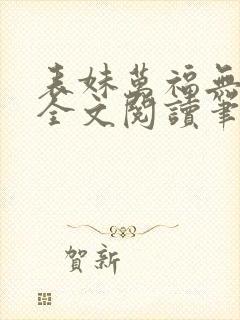 表妹萬福無
全文閱讀筆
賀新